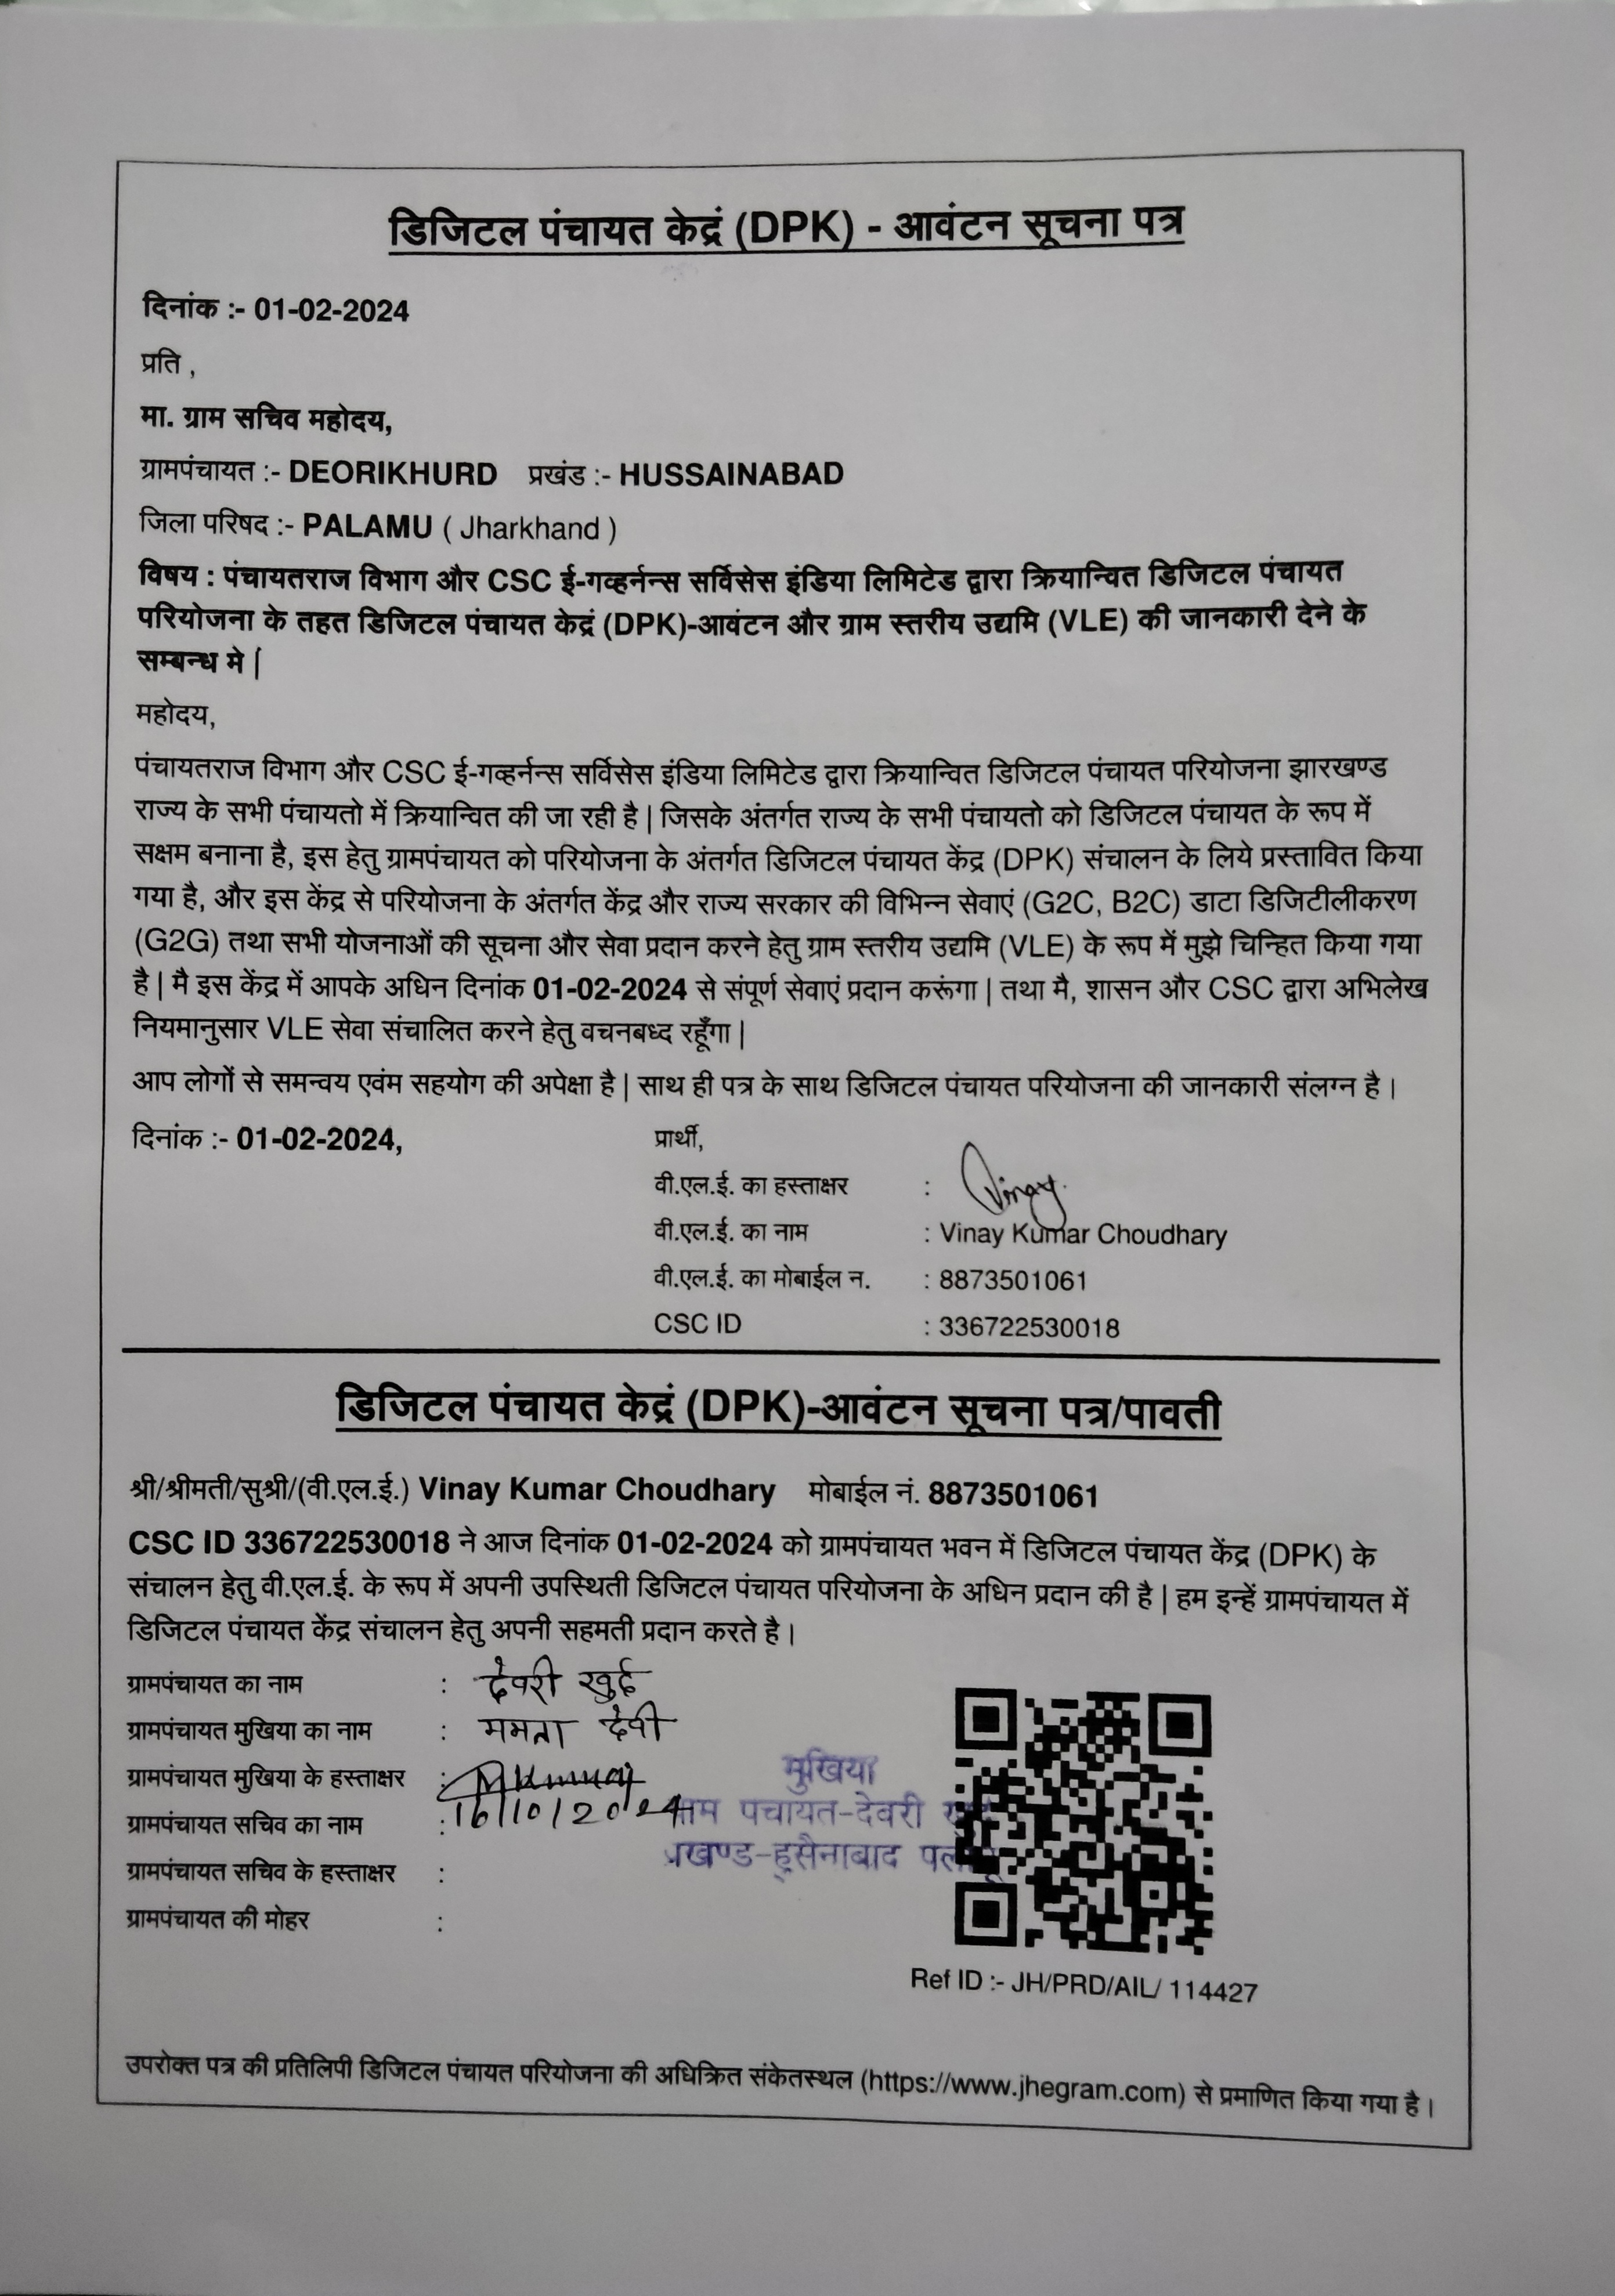 डिजिटल पंचायत केद्रं (DPK) - आवंटन सूचना पत्र
दिनांक :- 01-02-2024
प्रति ,
मा. ग्राम सचिव महोदय,
ग्रामपंचायत :- DEORIKHURD प्रखंड :- HUSSAINABAD
जिला परिषद :- PALAMU ( Jharkhand )
विषय : पंचायतराज विभाग और CSC ई-गव्हर्नन्स सर्विसेस इंडिया लिमिटेड द्वारा क्रियान्वित डिजिटल पंचायत
परियोजना के तहत डिजिटल पंचायत केद्रं (DPK)-आवंटन और ग्राम स्तरीय उद्यमि (VLE) की जानकारी देने के
सम्बन्ध मे |
महोदय,
पंचायतराज विभाग और CSC ई-गव्हर्नन्स सर्विसेस इंडिया लिमिटेड द्वारा क्रियान्वित डिजिटल पंचायत परियोजना झारखण्ड
राज्य के सभी पंचायतो में क्रियान्वित की जा रही है | जिसके अंतर्गत राज्य के सभी पंचायतो को डिजिटल पंचायत के रूप में
सक्षम बनाना है, इस हेतु ग्रामपंचायत को परियोजना के अंतर्गत डिजिटल पंचायत केंद्र (DPK) संचालन के लिये प्रस्तावित किया
गया है, और इस केंद्र से परियोजना के अंतर्गत केंद्र और राज्य सरकार की विभिन्न सेवाएं (G2C, B2C) डाटा डिजिटीलीकरण
(G2G) तथा सभी योजनाओं की सूचना और सेवा प्रदान करने हेतु ग्राम स्तरीय उद्यमि (VLE) के रूप में मुझे चिन्हित किया गया
है | मै इस केंद्र में आपके अधिन दिनांक 01-02-2024 से संपूर्ण सेवाएं प्रदान करूंगा | तथा मै, शासन और CSC द्वारा अभिलेख
नियमानुसार VLE सेवा संचालित करने हेतु वचनबध्द रहूँगा |
आप लोगों से समन्वय एवंम सहयोग की अपेक्षा है | साथ ही पत्र के साथ डिजिटल पंचायत परियोजना की जानकारी संलग्न है ।
दिनांक :- 01-02-2024, प्रार्थी,
वी.एल.ई. का हस्ताक्षर : Vinay
वी.एल.ई. का नाम : Vinay Kumar Choudhary
वी.एल.ई. का मोबाईल न. : 8873501061
CSC ID : 336722530018
डिजिटल पंचायत केद्रं (DPK)-आवंटन सूचना पत्र/पावती
श्री/श्रीमती/सुश्री/(वी.एल.ई.) Vinay Kumar Choudhary मोबाईल नं. 8873501061
CSC ID 336722530018 ने आज दिनांक 01-02-2024 को ग्रामपंचायत भवन में डिजिटल पंचायत केंद्र (DPK) के
संचालन हेतु वी.एल.ई. के रूप में अपनी उपस्थिती डिजिटल पंचायत परियोजना के अधिन प्रदान की है | हम इन्हें ग्रामपंचायत में
डिजिटल पंचायत केंद्र संचालन हेतु अपनी सहमती प्रदान करते है ।
ग्रामपंचायत का नाम : देवरी खुर्द
ग्रामपंचायत मुखिया का नाम : ममता देवी
ग्रामपंचायत मुखिया के हस्ताक्षर :
मुखिया
ग्रामपंचायत सचिव का नाम : 16/10/2024
ग्राम पंचायत-देवरी खुर्द
ग्रामपंचायत सचिव के हस्ताक्षर :
प्रखण्ड-हुसैनाबाद पलामू
ग्रामपंचायत की मोहर :
Ref ID :- JH/PRD/AIL/ 114427
उपरोक्त पत्र की प्रतिलिपी डिजिटल पंचायत परियोजना की अधिक्रित संकेतस्थल (https://www.jhegram.com) से प्रमाणित किया गया है ।